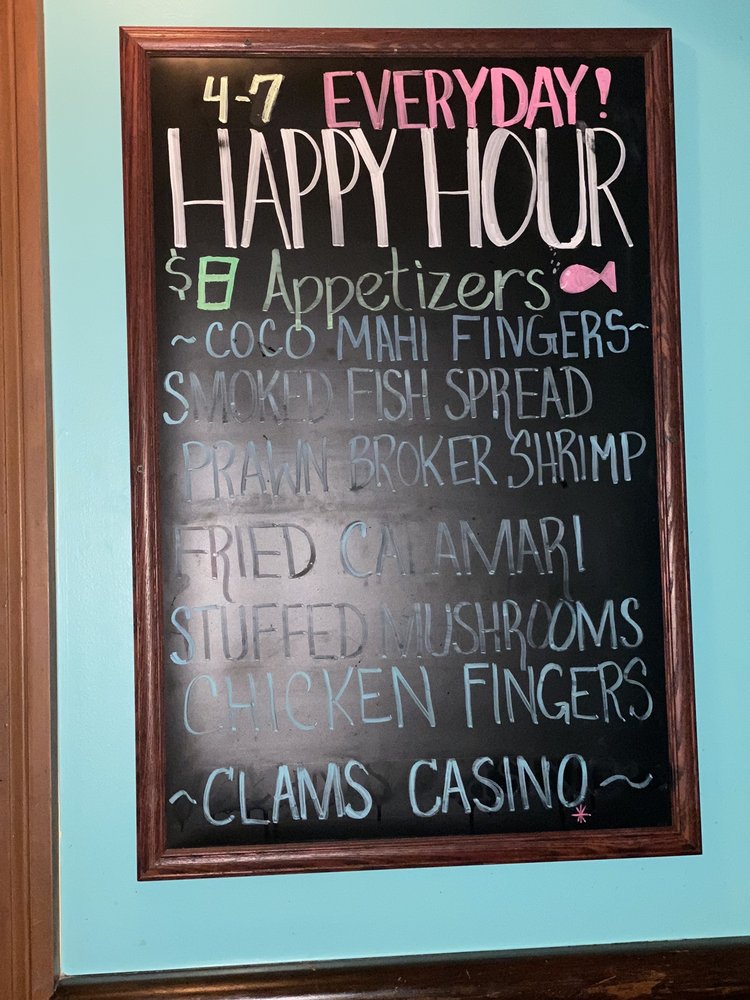 4-7 EVERYDAY!
HAPPY HOUR
$8 Appetizers
~COCO MAHI FINGERS~
SMOKED FISH SPREAD
PRAWN BROKER SHRIMP
FRIED CALAMARI
STUFFED MUSHROOMS
CHICKEN FINGERS
~CLAMS CASINO~
*